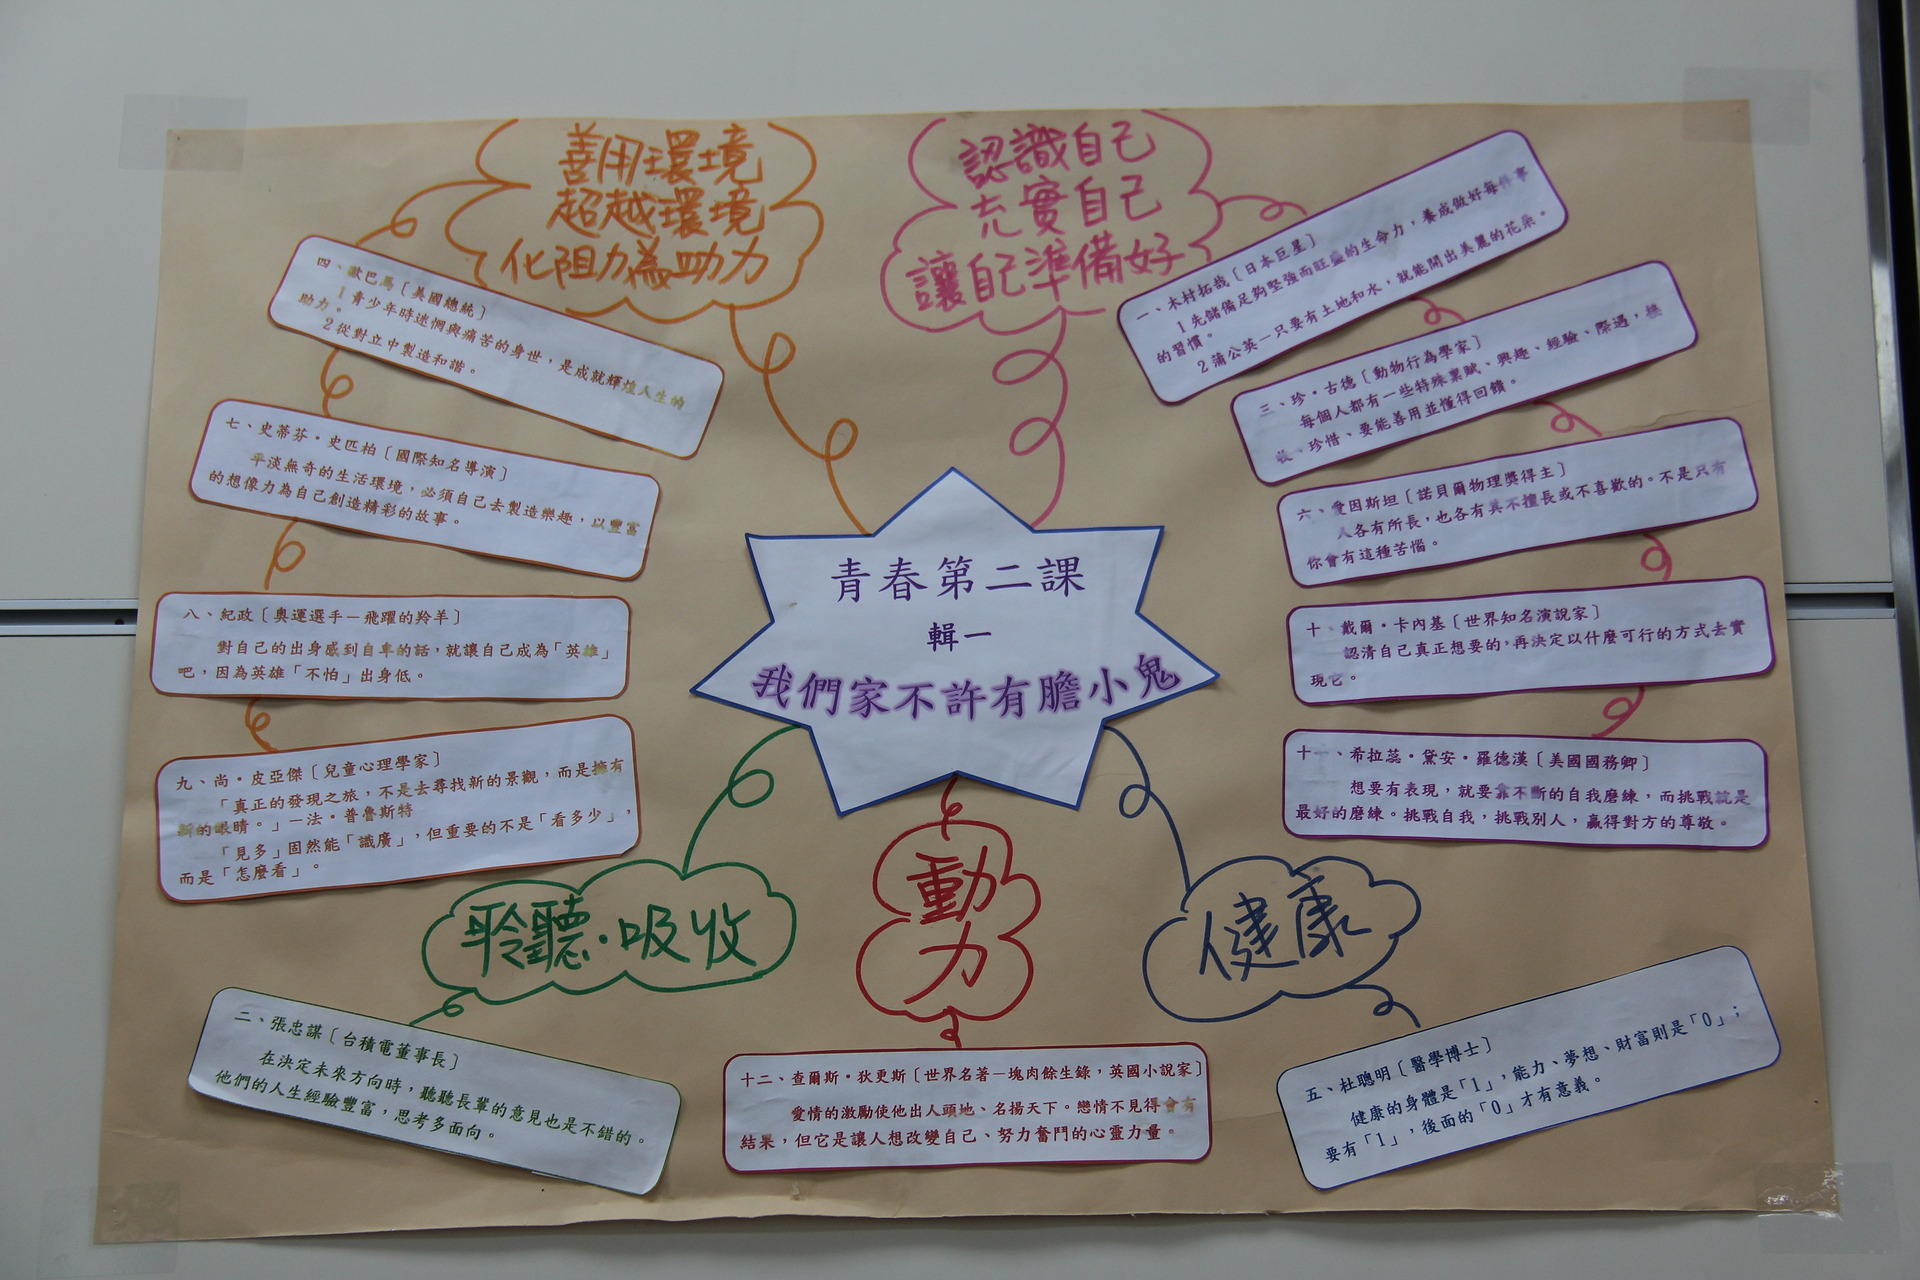 青春第二課
輯一
我們家不許有膽小鬼
認識自己
充實自己
讓自己準備好
一、木村拓哉〔日本巨星〕
1先儲備足夠堅強而旺盛的生命力，養成做好每件事
的習慣。
2蒲公英－只要有土地和水，就能開出美麗的花朵。
三、珍‧古德〔動物行為學家〕
每個人都有一些特殊稟賦、興趣、經驗、際遇，接
收、珍惜、要能善用並懂得回饋。
六、愛因斯坦〔諾貝爾物理獎得主〕
人各有所長，也各有其不擅長或不喜歡的。不是只有
你會有這種苦惱。
十、戴爾‧卡內基〔世界知名演說家〕
認清自己真正想要的，再決定以什麼可行的方式去實
現它。
十一、希拉蕊‧黛安‧羅德漢〔美國國務卿〕
想要有表現，就要靠不斷的自我磨練，而挑戰就是
最好的磨練。挑戰自我，挑戰別人，贏得對方的尊敬。
善用環境
超越環境
化阻力為助力
四、歐巴馬〔美國總統〕
1青少年時迷惘與痛苦的身世，是成就輝煌人生的
助力。
2從對立中製造和諧。
七、史蒂芬‧史匹柏〔國際知名導演〕
平淡無奇的生活環境，必須自己去製造樂趣，以豐富
的想像力為自己創造精彩的故事。
八、紀政〔奧運選手－飛躍的羚羊〕
對自己的出身感到自卑的話，就讓自己成為「英雄」
吧，因為英雄「不怕」出身低。
九、尚‧皮亞傑〔兒童心理學家〕
「真正的發現之旅，不是去尋找新的景觀，而是擁有
新的眼睛。」－法‧普魯斯特
「見多」固然能「識廣」，但重要的不是「看多少」，
而是「怎麼看」。
聆聽‧吸收
二、張忠謀〔台積電董事長〕
在決定未來方向時，聽聽長輩的意見也是不錯的。
他們的人生經驗豐富，思考多面向。
動
力
十二、查爾斯‧狄更斯〔世界名著－塊肉餘生錄，英國小說家〕
愛情的激勵使他出人頭地、名揚天下。戀情不見得會有
結果，但它是讓人想改變自己、努力奮鬥的心靈力量。
健康
五、杜聰明〔醫學博士〕
健康的身體是「1」，能力、夢想、財富則是「0」；
要有「1」，後面的「0」才有意義。